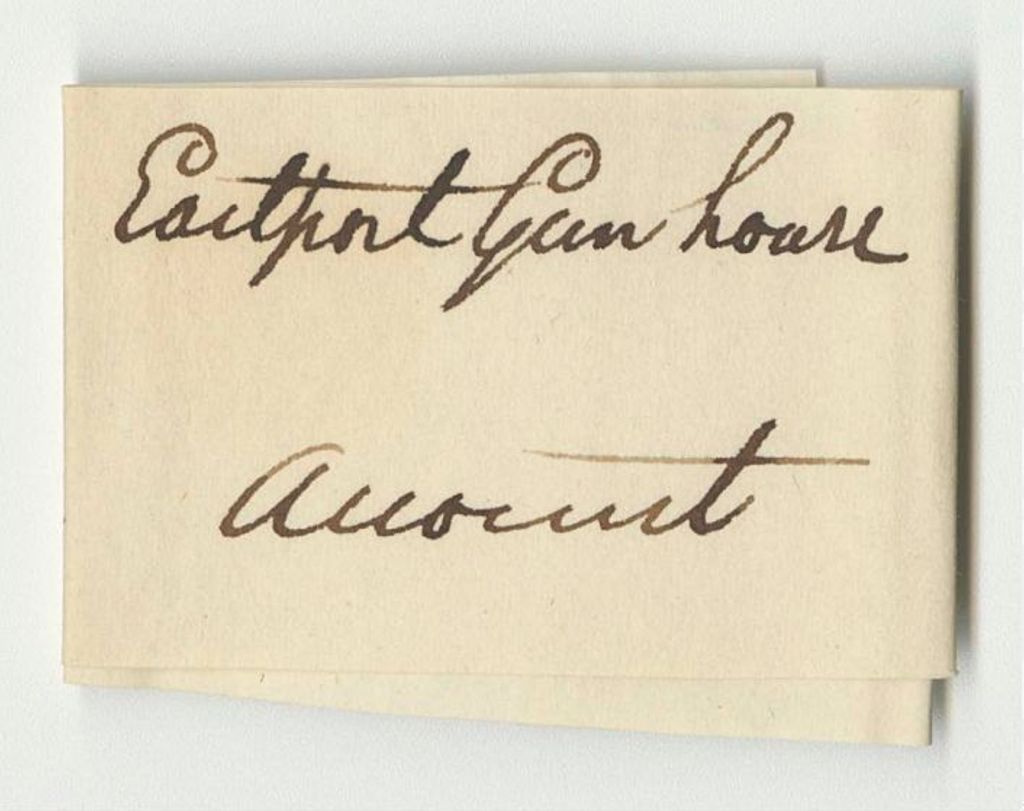 Eastport Gun house
Account